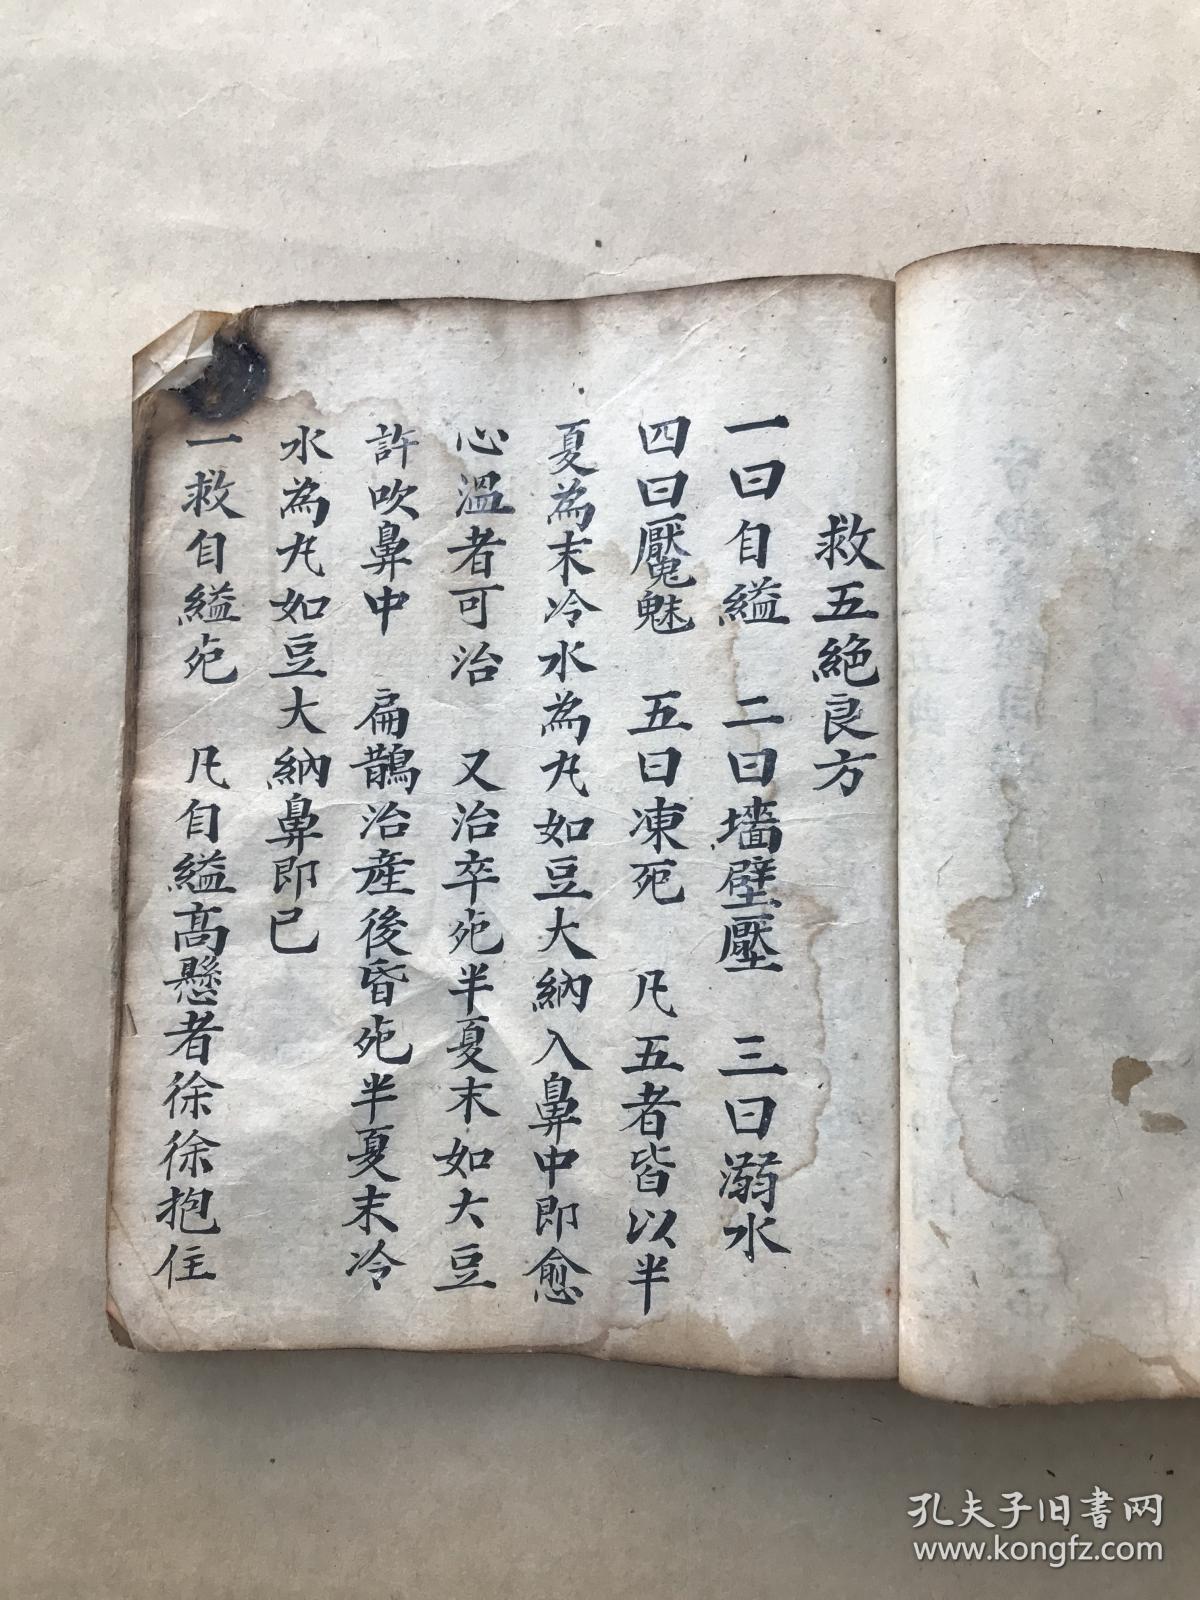 救五絶良方
一曰自縊 二曰墻壁壓 三曰溺水
四曰魘魅 五曰凍死 凡五者皆以半
夏為末冷水為丸如豆大納入鼻中即愈
心溫者可治 又治卒死半夏末如大豆
許吹鼻中 扁鵲治産後昏死半夏末冷
水為丸如豆大納鼻即已
一救自縊死 凡自縊高懸者徐徐抱住
孔夫子旧书网
www.kongfz.com